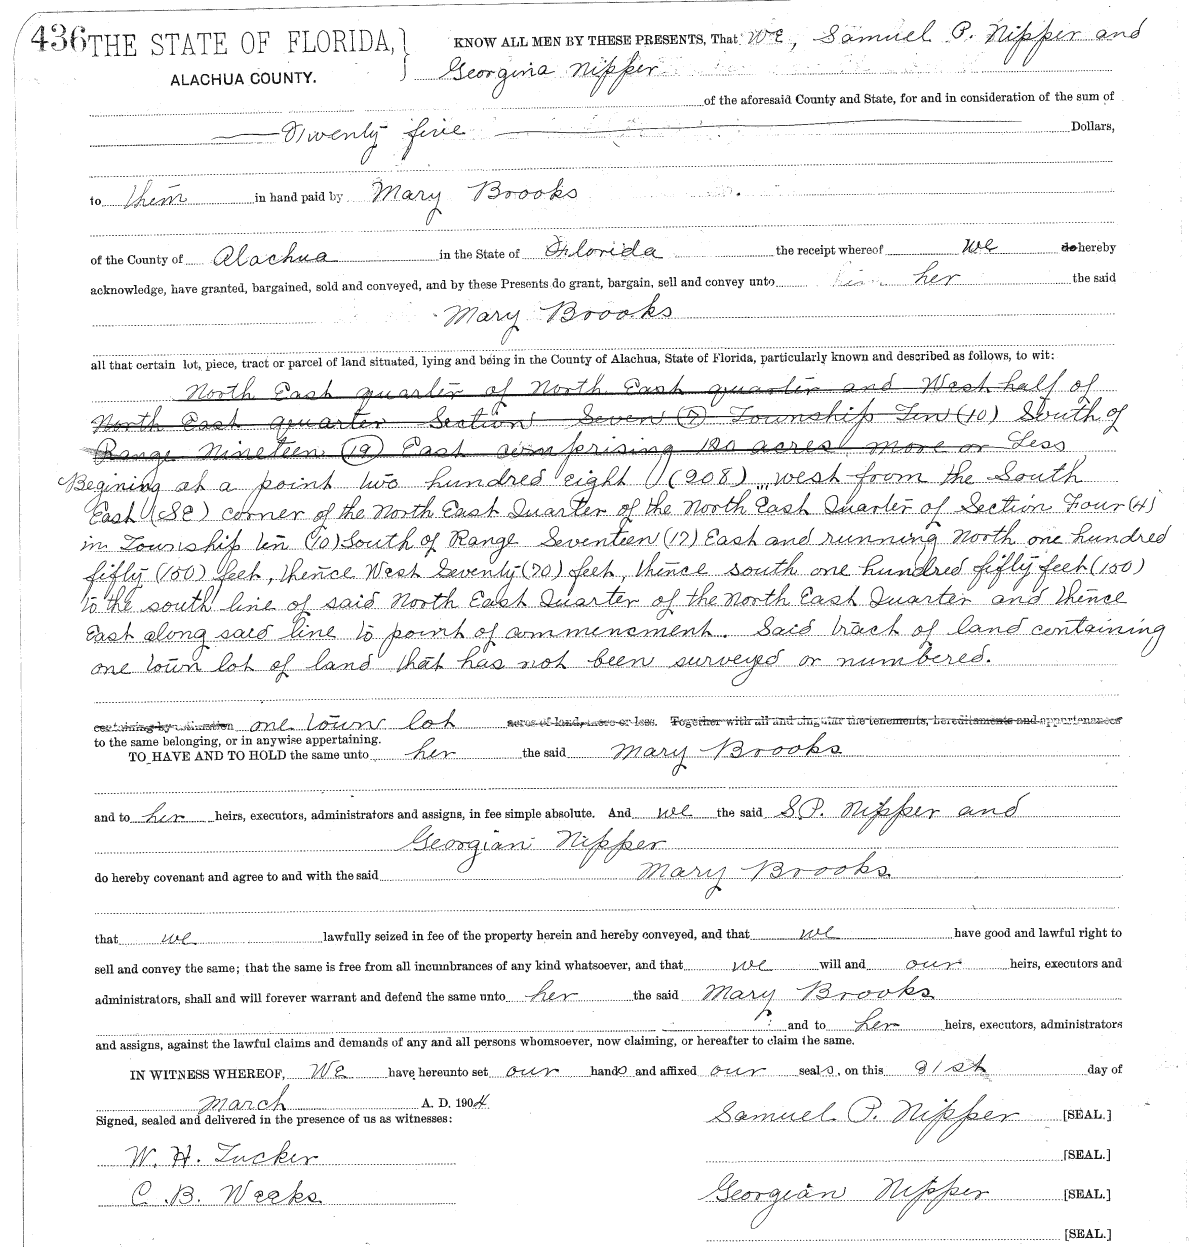 436 THE STATE OF FLORIDA,
ALACHUA COUNTY.
KNOW ALL MEN BY THESE PRESENTS, That We, Samuel P. Nipper and
Georgina Nipper
of the aforesaid County and State, for and in consideration of the sum of
Twenty five Dollars,
to them in hand paid by Mary Brooks
of the County of Alachua in the State of Florida the receipt whereof we do hereby
acknowledge, have granted, bargained, sold and conveyed, and by these Presents do grant, bargain, sell and convey unto her the said
Mary Brooks
all that certain lot, piece, tract or parcel of land situated, lying and being in the County of Alachua, State of Florida, particularly known and described as follows, to wit:
North East quarter of North East quarter and West half of
North East quarter Section Seven (7) Township Ten (10) South of
Range Nineteen (19) East comprising 120 acres more or Less
Begining at a point two hundred eight (208) west from the South
East (SE) corner of the North East Quarter of the North East Quarter of Section Four (4)
in Township ten (10) South of Range Seventeen (17) East and running North one hundred
fifty (150) feet, thence West Seventy (70) feet, thence south one hundred fifty feet (150)
to the south line of said North East Quarter of the North East Quarter and thence
East along said line to point of commencment. Said tract of land containing
one town lot of land that has not been surveyed or numbered.
containing by estimation one town lot acres of land, more or less. Together with all and singular the tenements, hereditaments and appurtenances
to the same belonging, or in anywise appertaining.
TO HAVE AND TO HOLD the same unto her the said Mary Brooks
and to her heirs, executors, administrators and assigns, in fee simple absolute. And we the said S.P. Nipper and
Georgian Nipper
do hereby covenant and agree to and with the said Mary Brooks
that we lawfully seized in fee of the property herein and hereby conveyed, and that we have good and lawful right to
sell and convey the same; that the same is free from all incumbrances of any kind whatsoever, and that we will and our heirs, executors and
administrators, shall and will forever warrant and defend the same unto her the said Mary Brooks
and to her heirs, executors, administrators
and assigns, against the lawful claims and demands of any and all persons whomsoever, now claiming, or hereafter to claim the same.
IN WITNESS WHEREOF, We have hereunto set our hands and affixed our seals, on this 31st day of
March A. D. 1904
Signed, sealed and delivered in the presence of us as witnesses:
Samuel P. Nipper [SEAL.]
W. H. Tucker [SEAL.]
C. B. Weeks Georgian Nipper [SEAL.]
[SEAL.]